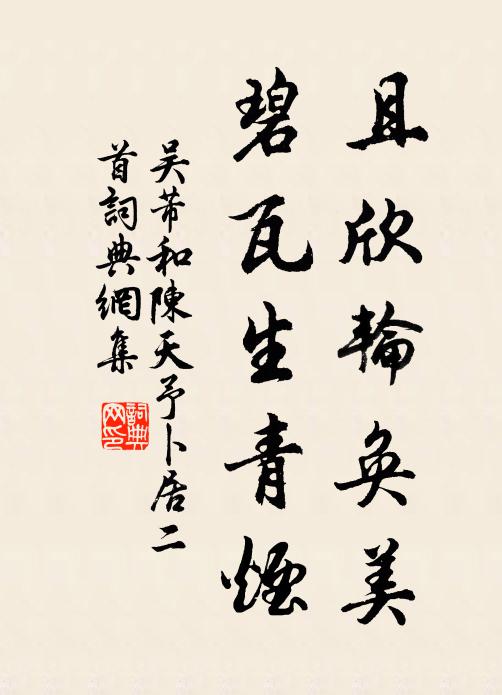 且欣輪奐美
碧瓦生青煙
吴芾和陳天予卜居二
首詞典網集
詞典
网印